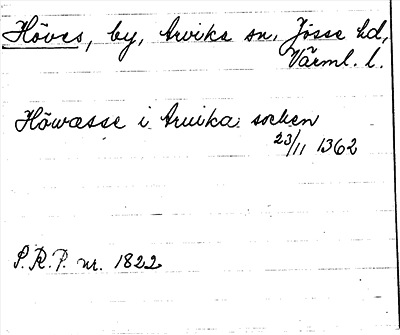 Höves, by, Arvika sn, Jösse hd,
Värml. l.
Höwæsse i Aruika socken
23/11 1362
P.R.P. nr. 1822